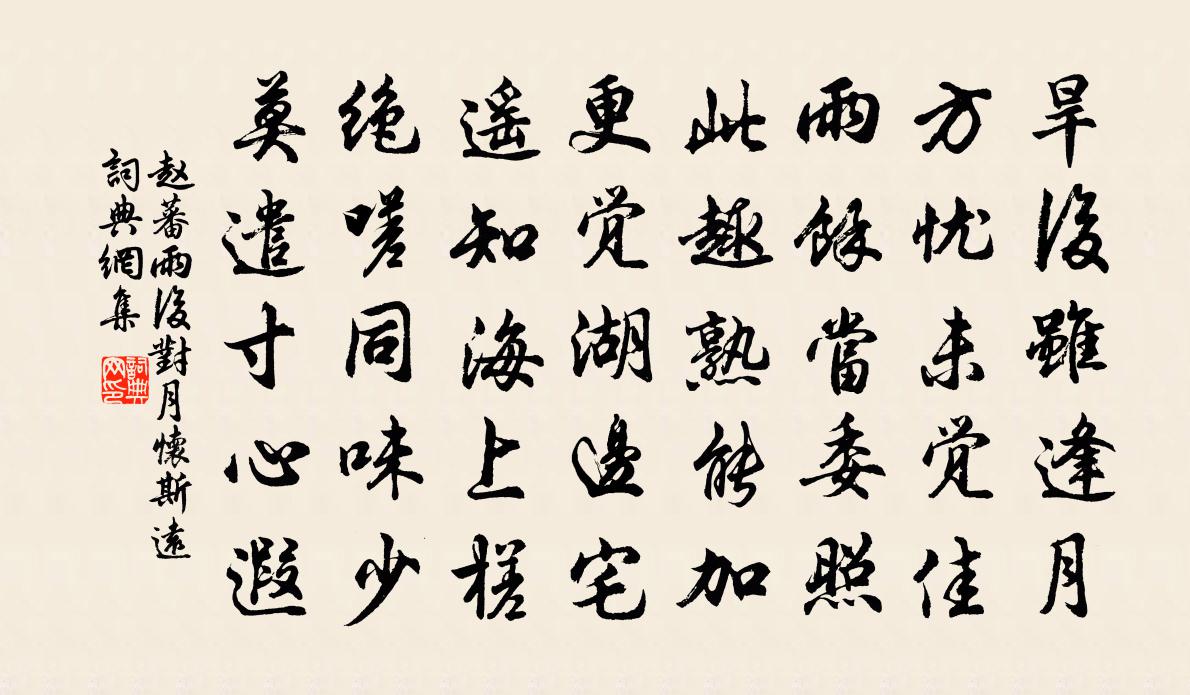 旱後雖逢月
方忧未觉佳
雨餘當委照
此趣熟能加
更觉湖邊宅
遥知海上槎
绝嗟同味少
莫遣寸心遐
赵蕃雨後對月懷斯遠
詞典網集
詞典网印